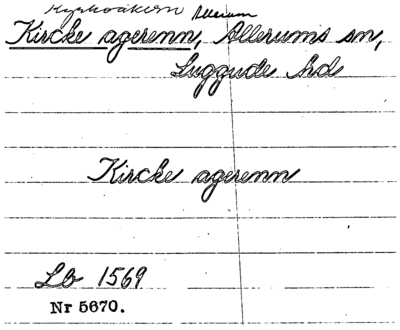 Kyrkoåkern Allerum
Kircke agerenn, Allerums sn,
Luggude hd
Kircke agerenn
Lb 1569
Nr 5670.